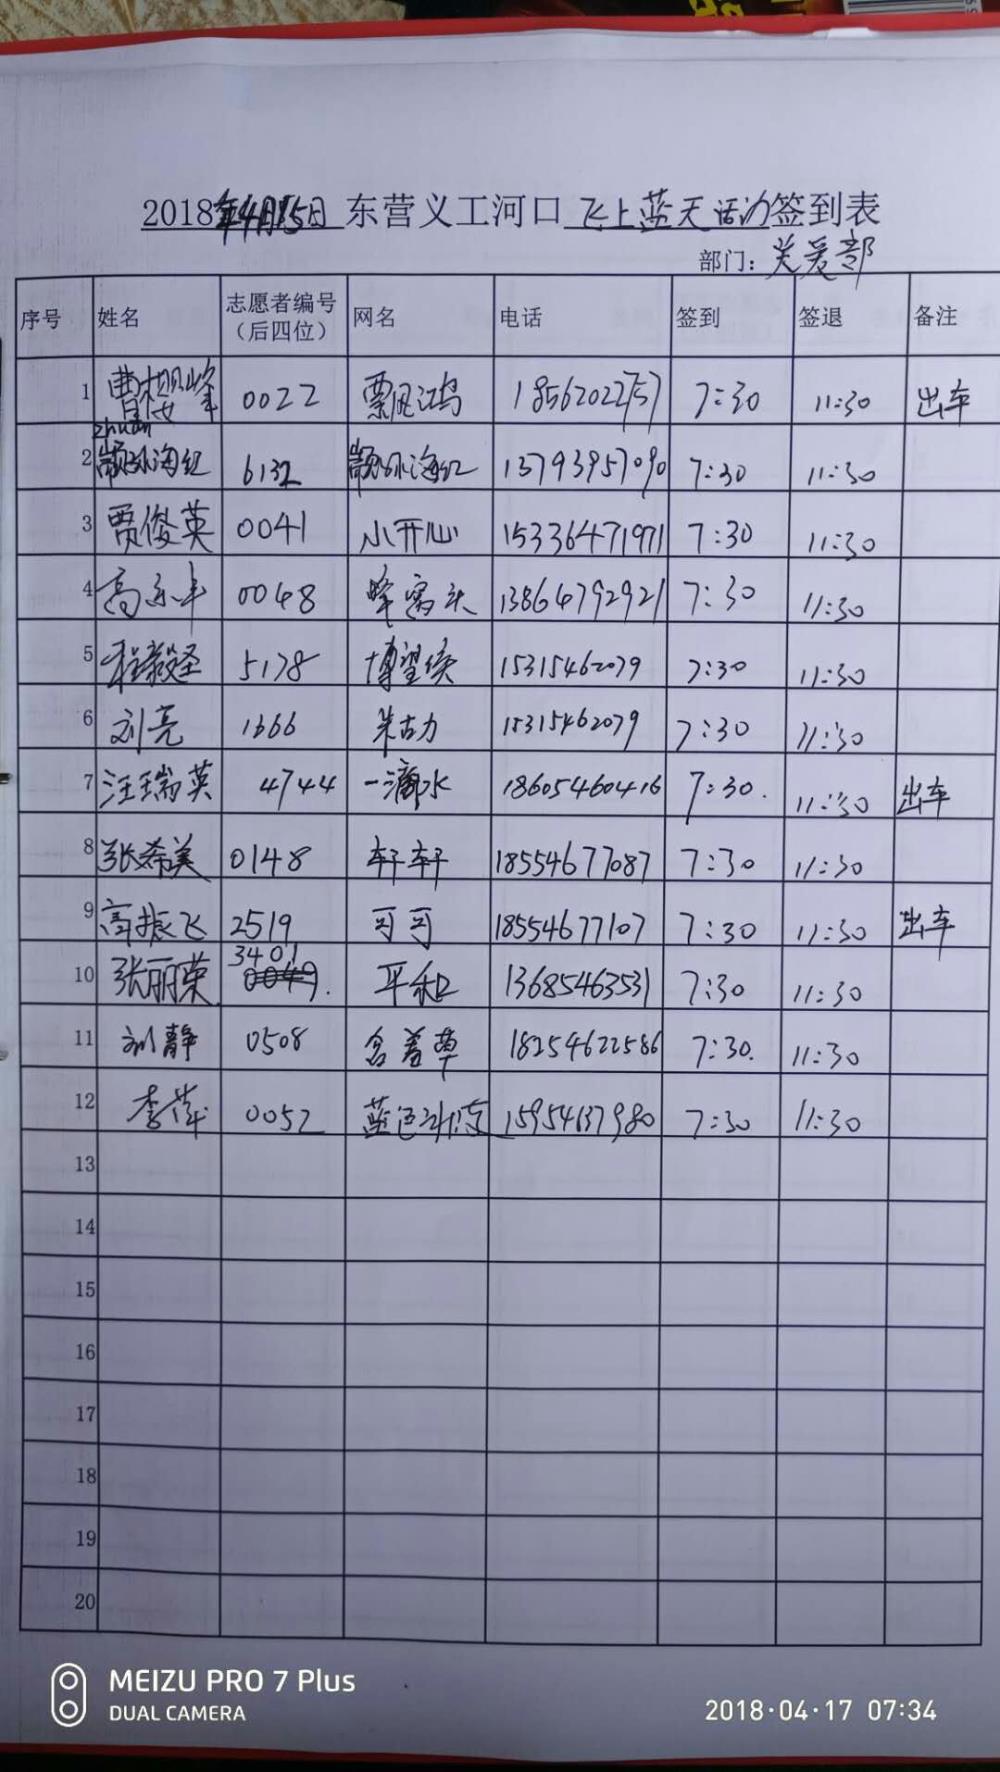 2018年4月15日 东营义工河口 飞上蓝天活动 签到表
部门：关爱部
序号 姓名 志愿者编号（后四位） 网名 电话 签到 签退 备注
1 曹樱峰 0022 飘飞鸿 18562022757 7:30 11:30 出车
zhuan
2 颛孙海红 6132 颛孙海红 13793957090 7:30 11:30
3 贾俊英 0041 小开心 15336471971 7:30 11:30
4 高永丰 0048 蜂窝头 13864792921 7:30 11:30
5 程毅圣 5178 博望侯 15315462079 7:30 11:30
6 刘亮 1666 朱古力 15315462079 7:30 11:30
7 汪瑞英 4744 一滴水 18605460416 7:30. 11:30 出车
8 张希美 0148 轩轩 18554677087 7:30 11:30
9 高振飞 2519 可可 18554677107 7:30 11:30 出车
10 张丽荣 3401 0049. 平和 13685463531 7:30 11:30
11 刘静 0508 含羞草 18254622586 7:30. 11:30
12 李萍 0052 蓝色 15954637980 7:30 11:30
13
14
15
16
17
18
19
20
MEIZU PRO 7 Plus
DUAL CAMERA
2018·04·17 07:34